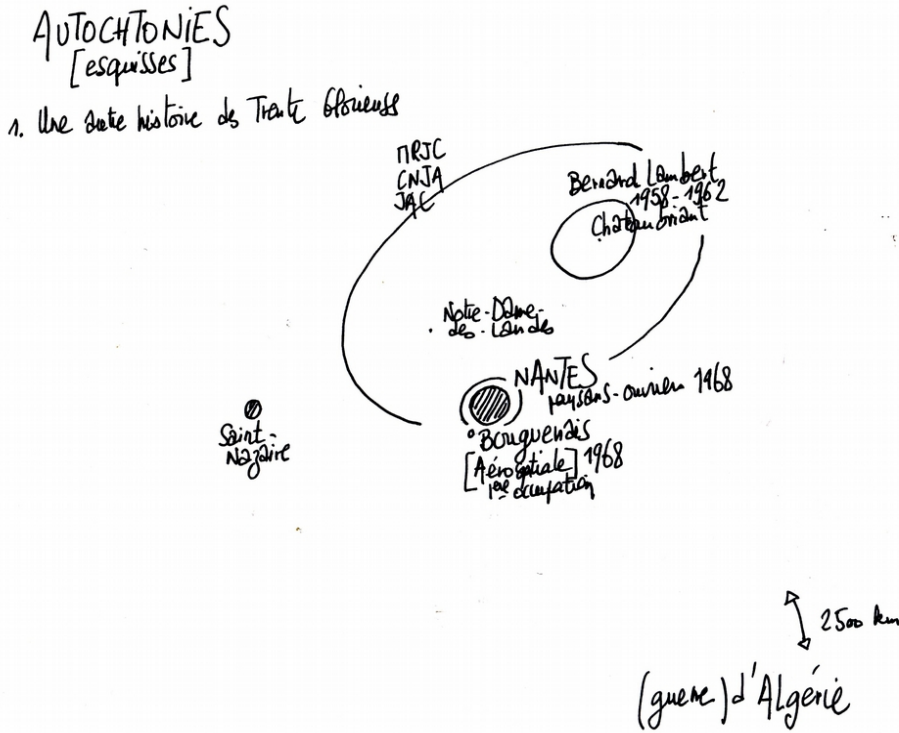 AUTOCHTONIES
[esquisses]
1. Une autre histoire des Trente Glorieuses
MRJC
CNJA
JAC
Bernard Lambert
1958-1962
Chateaubriant
Notre-Dame-
des-Landes
NANTES
paysans-ouvriers 1968
Saint-
Nazaire
Bouguenais
[Aérospatiale] 1968
1ère occupation
2500 km
(guerre) d'Algérie